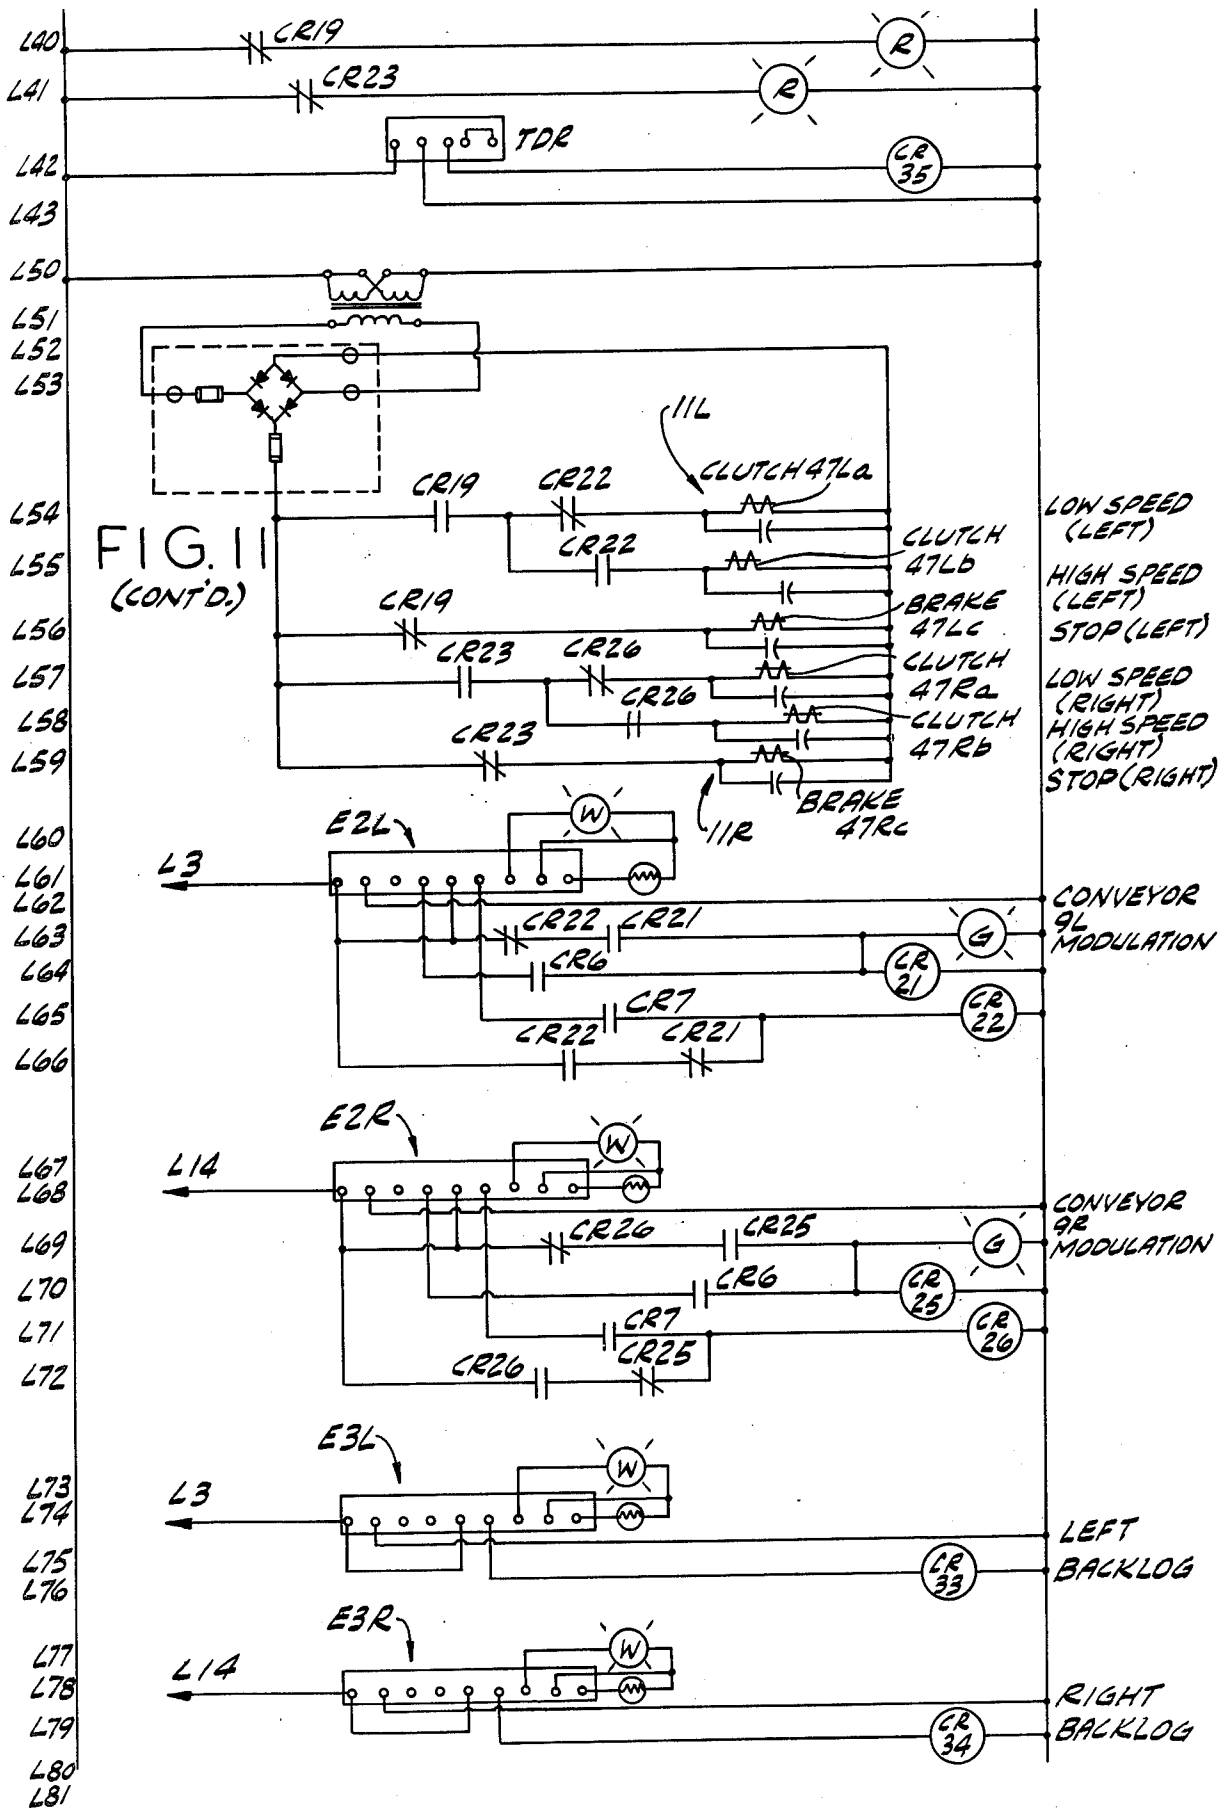 L40 CR19 R
L41 CR23 R
TDR
L42 CR 35
L43
L50
L51
L52
L53
11L
CLUTCH 47La
L54 CR19 CR22 LOW SPEED (LEFT)
FIG. 11 (CONT'D.)
L55 CR22 CLUTCH 47Lb HIGH SPEED (LEFT)
L56 CR19 BRAKE 47Lc STOP (LEFT)
L57 CR23 CR26 CLUTCH 47Ra LOW SPEED (RIGHT)
L58 CR26 CLUTCH 47Rb HIGH SPEED (RIGHT)
L59 CR23 STOP (RIGHT)
11R BRAKE 47Rc
L60 E2L W
L61 L3
L62 CONVEYOR 9L MODULATION
L63 CR22 CR21 G
L64 CR6 CR 21
L65 CR7 CR 22
L66 CR22 CR21
E2R W
L67 L14
L68 CONVEYOR 9R MODULATION
L69 CR26 CR25 G
L70 CR6 CR 25
L71 CR7 CR 26
L72 CR26 CR25
E3L W
L73 L3
L74 LEFT BACKLOG
L75 CR 33
L76
E3R W
L77
L78 L14 RIGHT BACKLOG
L79 CR 34
L80
L81